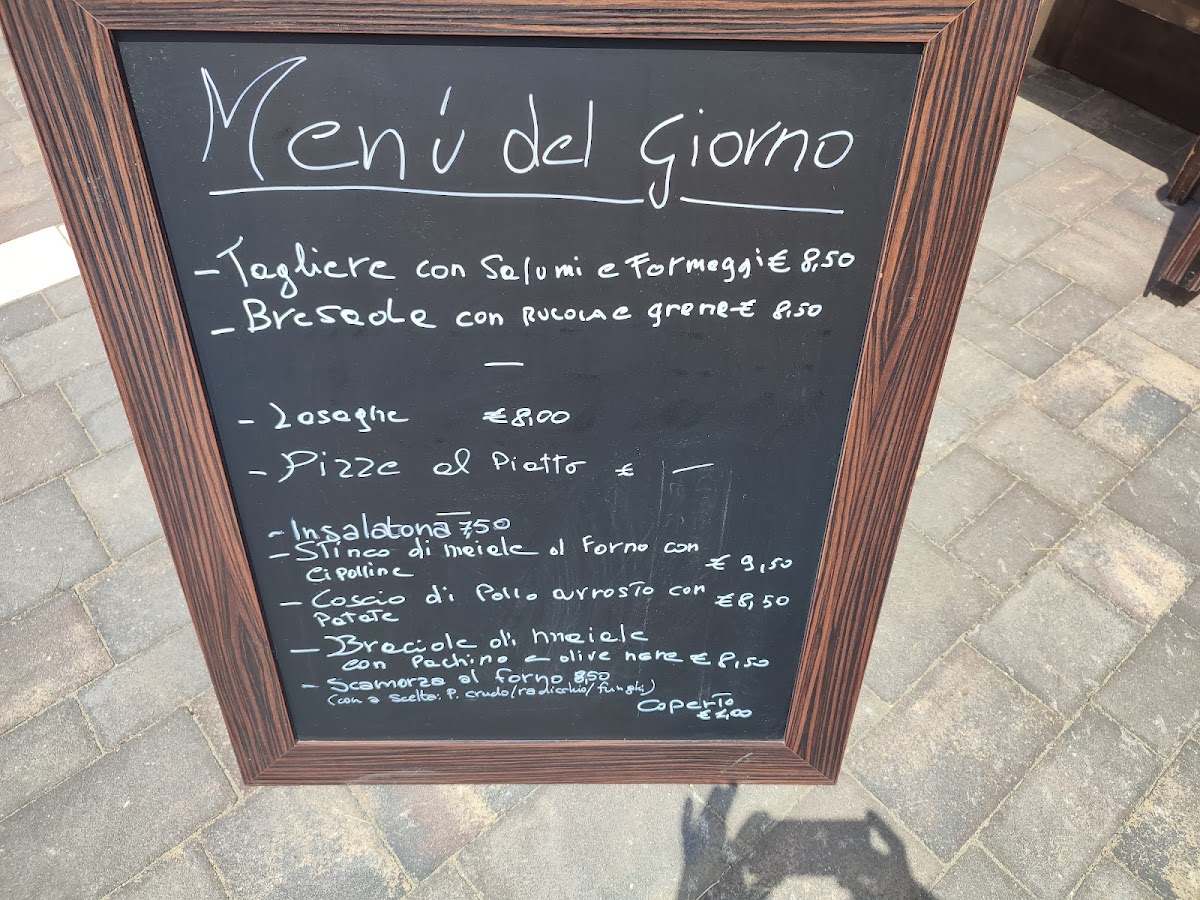 Menú del giorno
- Tagliere con Salumi e Formaggi € 8,50
- Bresaola con RUCOLA e grana € 8,50
—
- Lasaghe €8,00
- Pizza al Piatto € —
—
- Insalatona 7,50
- Stinco di maiale al Forno con € 9,50
cipolline
- Coscio di Pollo arrosto con €8,50
patate
- Braciola di maiale
con Pachino e olive nere € 8,50
- Scamorza al forno 8,50
(con a scelta: P. crudo/radicchio/funghi)
Coperto
€ 2,00